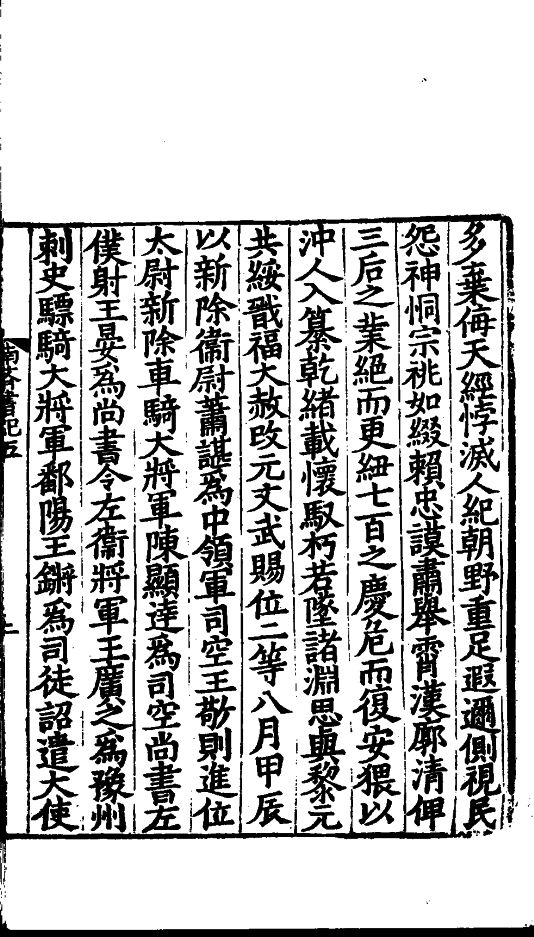 多棄侮天經悖滅人紀朝野重足遐邇側視民
怨神恫宗祧如綴賴忠謨肅舉霄漢廓清俾
三后之業絕而更紐七百之慶危而復安猥以
沖人入纂乾緒載懷馭朽若墜諸淵思與黎元
共綏戩福大赦改元文武賜位二等八月甲辰
以新除衞尉蕭諶爲中領軍司空王敬則進位
太尉新除車騎大將軍陳顯達爲司空尚書左
僕射王晏爲尚書令左衞將軍王廣之爲豫州
刺史驃騎大將軍鄱陽王鏘爲司徒詔遣大使
南齊書紀五